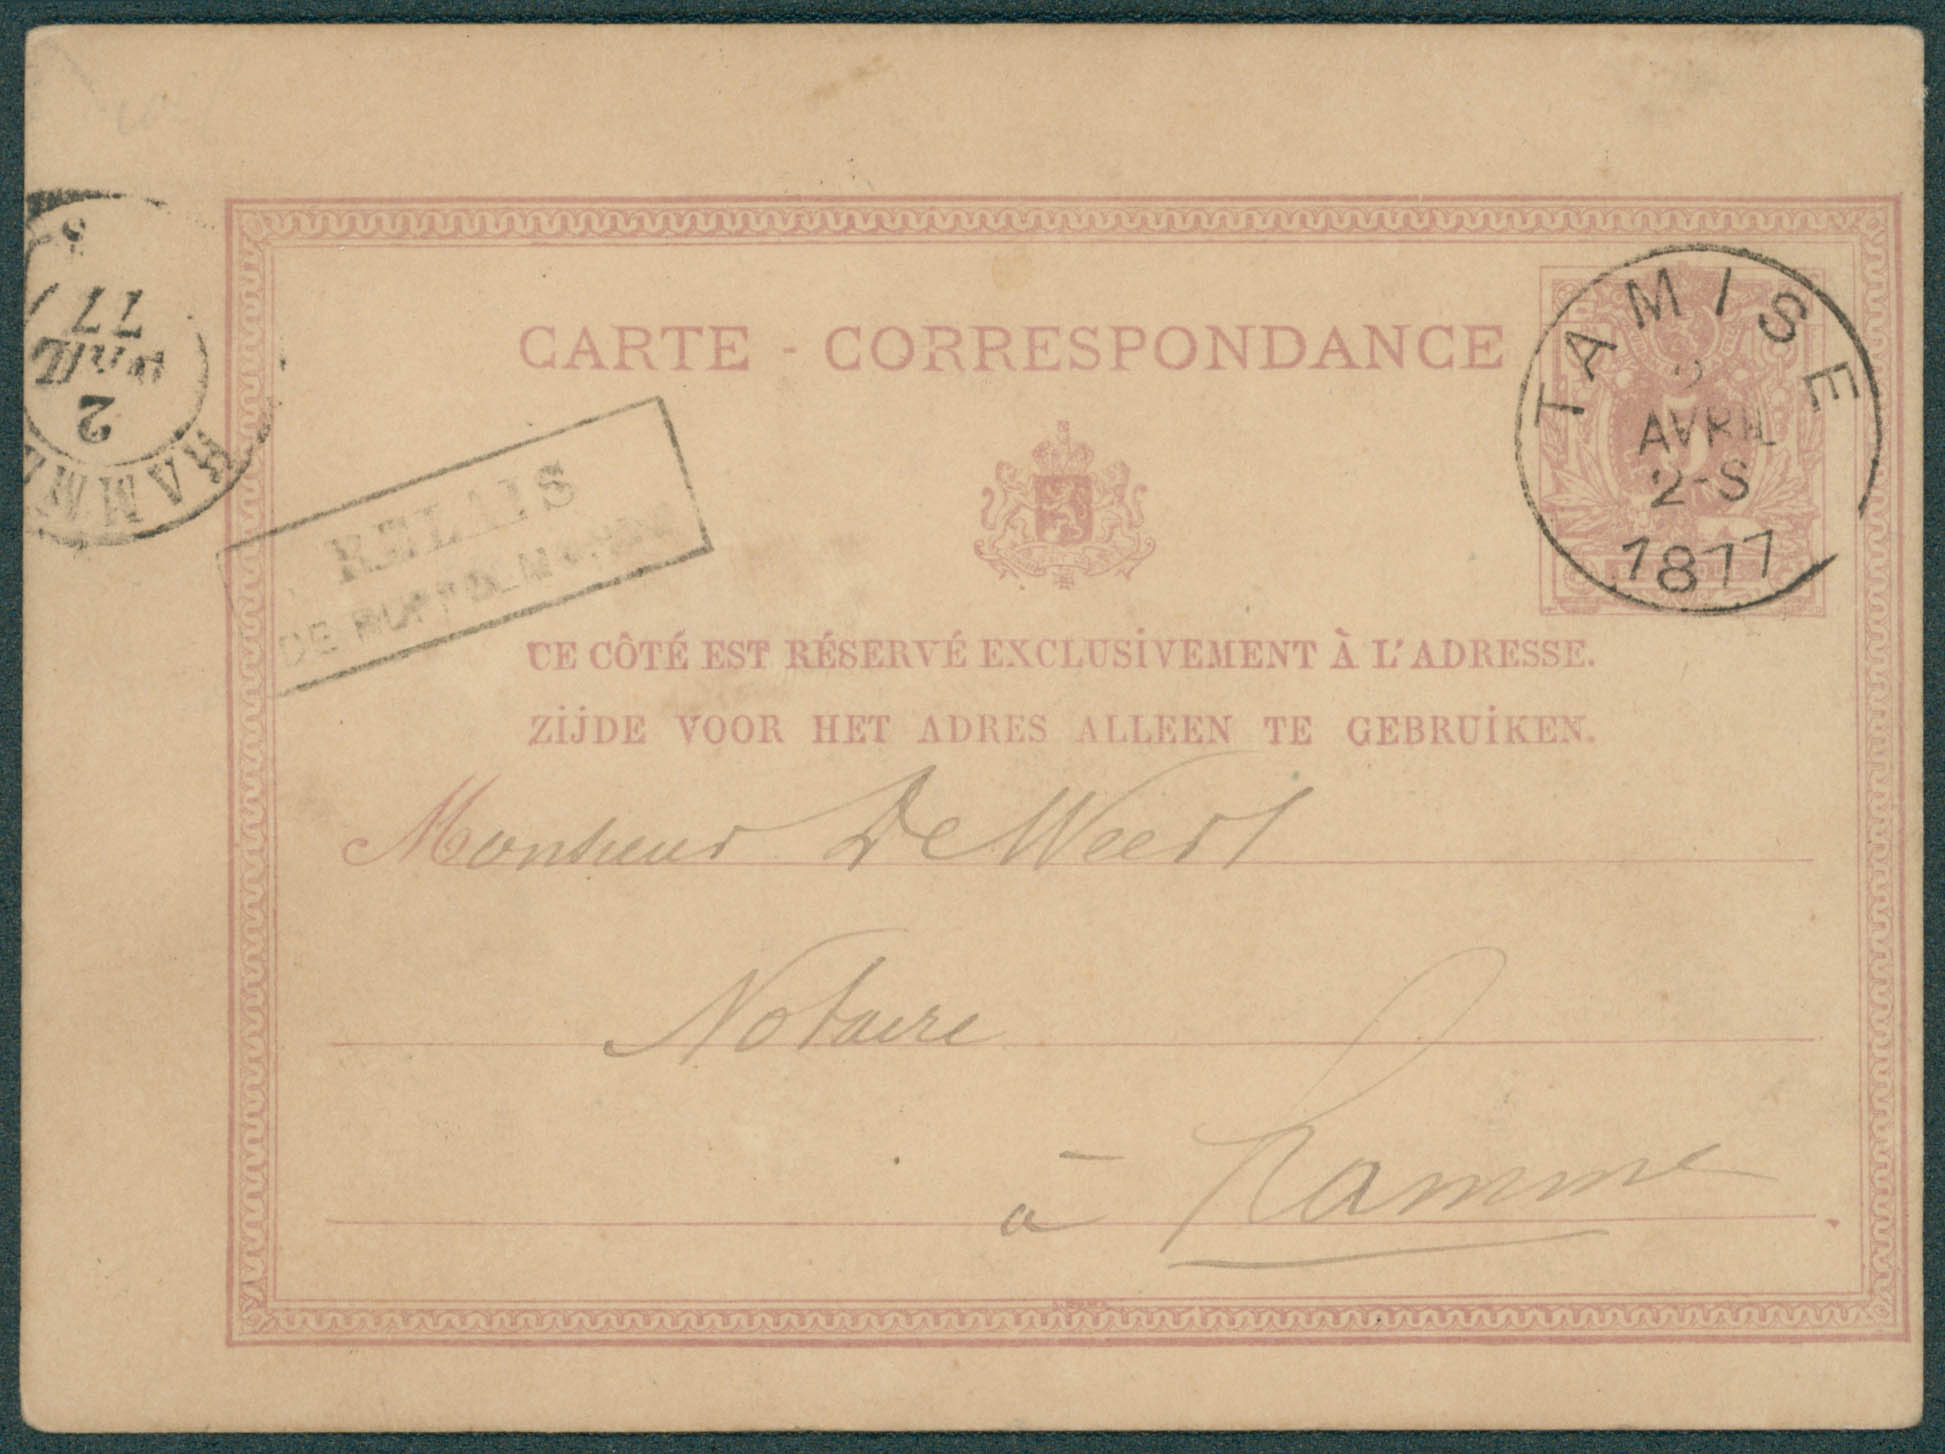 CARTE - CORRESPONDANCE
TAMISE
AVRIL
2-S
1877
5
HAMM
2
AVRIL
77
RELAIS
DE
CE CÔTÉ EST RÉSERVÉ EXCLUSIVEMENT À L'ADRESSE.
ZIJDE VOOR HET ADRES ALLEEN TE GEBRUIKEN.
Monsieur De Weert
Notaire
à Hamme